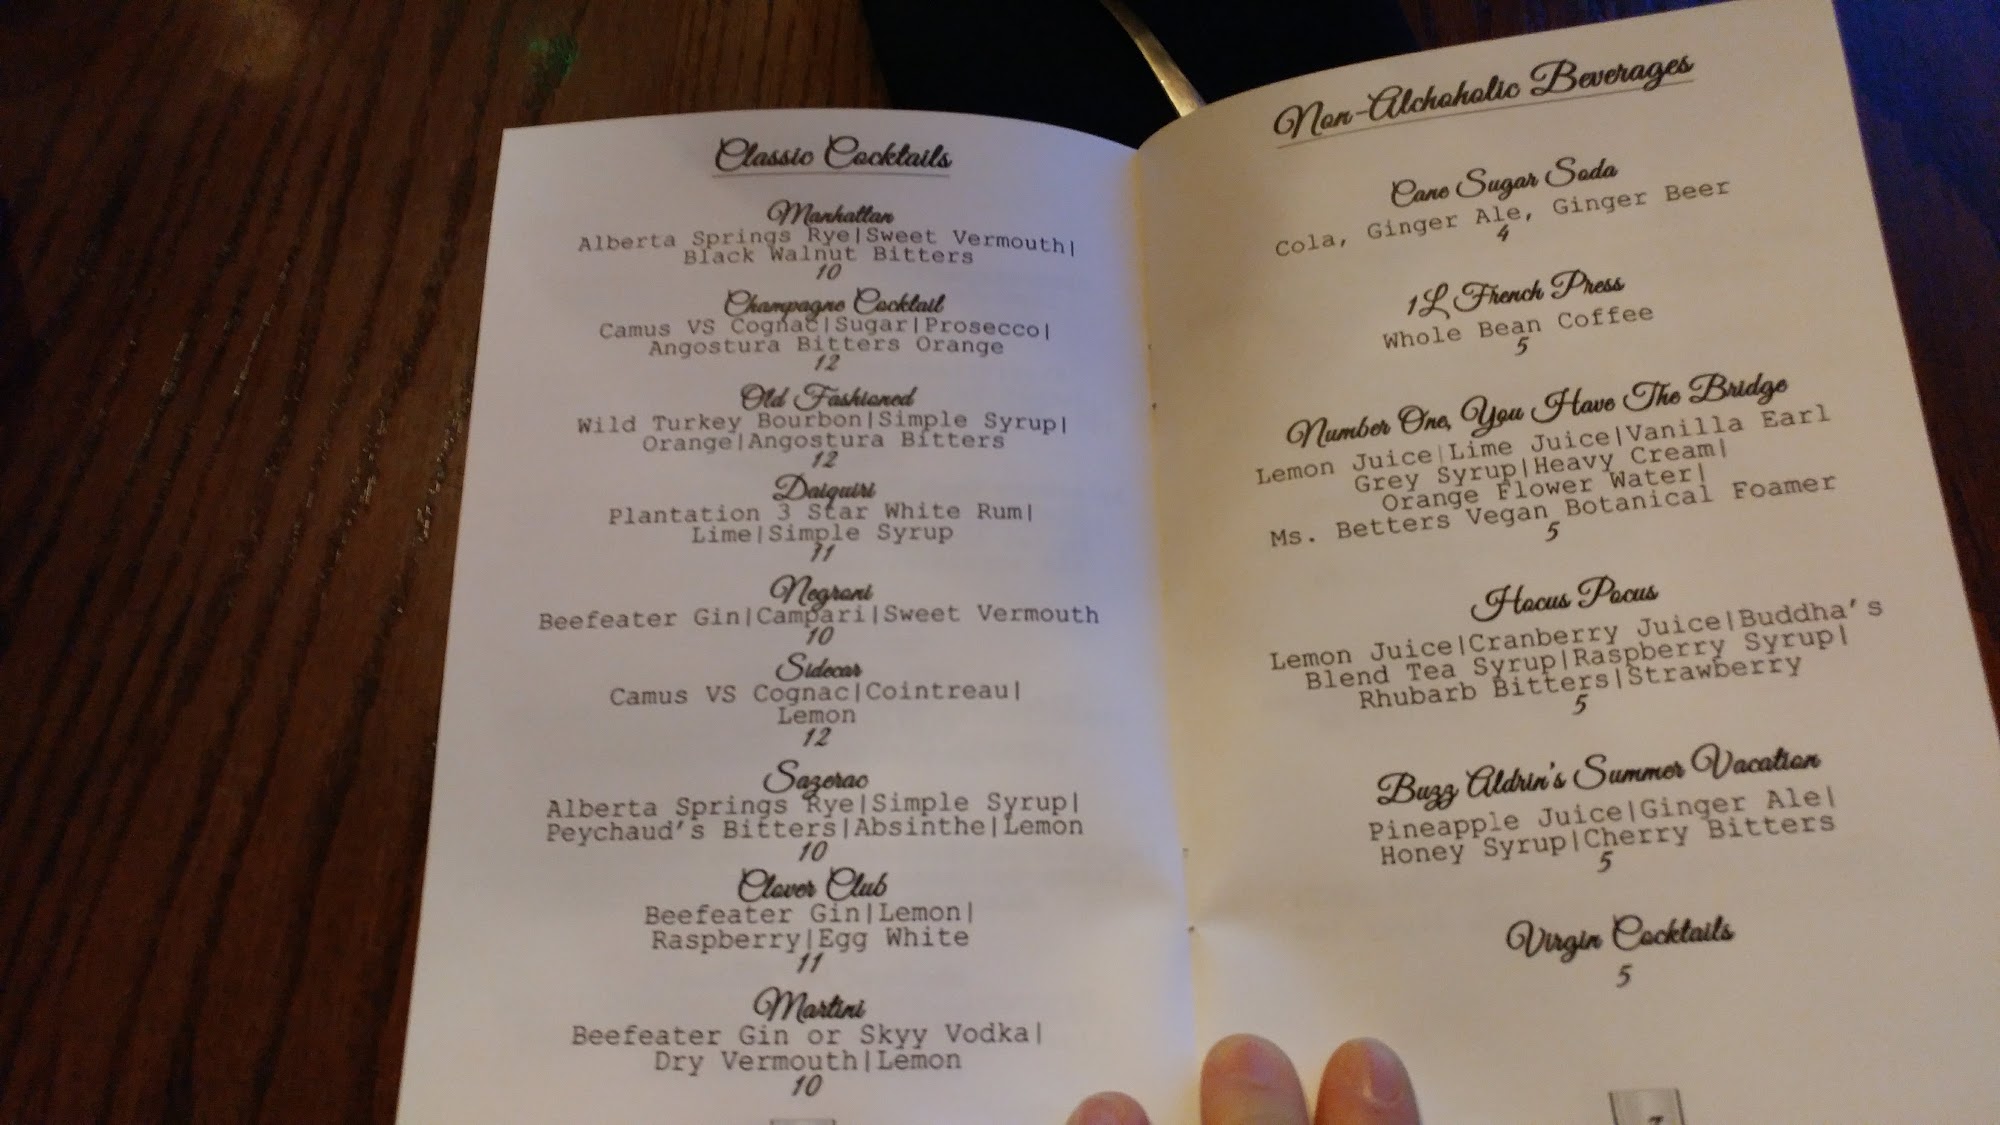 Classic Cocktails
Manhattan
Alberta Springs Rye|Sweet Vermouth|
Black Walnut Bitters
10
Champagne Cocktail
Camus VS Cognac|Sugar|Prosecco|
Angostura Bitters Orange
12
Old Fashioned
Wild Turkey Bourbon|Simple Syrup|
Orange|Angostura Bitters
12
Daiquiri
Plantation 3 Star White Rum|
Lime|Simple Syrup
11
Negroni
Beefeater Gin|Campari|Sweet Vermouth
10
Sidecar
Camus VS Cognac|Cointreau|
Lemon
12
Sazerac
Alberta Springs Rye|Simple Syrup|
Peychaud's Bitters|Absinthe|Lemon
10
Clover Club
Beefeater Gin|Lemon|
Raspberry|Egg White
11
Martini
Beefeater Gin or Skyy Vodka|
Dry Vermouth|Lemon
10
Non-Alchoholic Beverages
Cane Sugar Soda
Cola, Ginger Ale, Ginger Beer
4
1L French Press
Whole Bean Coffee
5
Number One, You Have The Bridge
Lemon Juice|Lime Juice|Vanilla Earl
Grey Syrup|Heavy Cream|
Orange Flower Water|
Ms. Betters Vegan Botanical Foamer
5
Hocus Pocus
Lemon Juice|Cranberry Juice|Buddha's
Blend Tea Syrup|Raspberry Syrup|
Rhubarb Bitters|Strawberry
5
Buzz Aldrin's Summer Vacation
Pineapple Juice|Ginger Ale|
Honey Syrup|Cherry Bitters
5
Virgin Cocktails
5